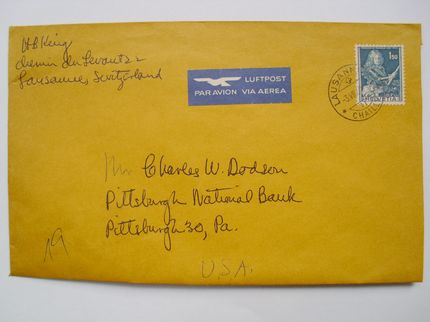 HB King
chemin du Levant 2
Lausanne, Switzerland
LUFTPOST
PAR AVION VIA AEREA
150
HELVETIA
LAUSANNE
Mr Charles W. Dodson
Pittsburgh National Bank
Pittsburgh 30, Pa.
U.S.A.
19